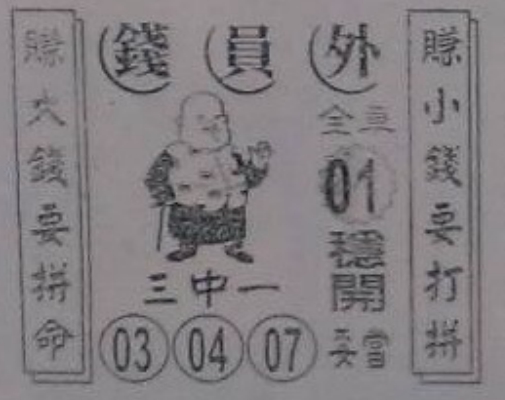 錢員外
賺小錢要打拼
全
01
穩開
妥當
三中一
03 04 07
賺大錢要拼命